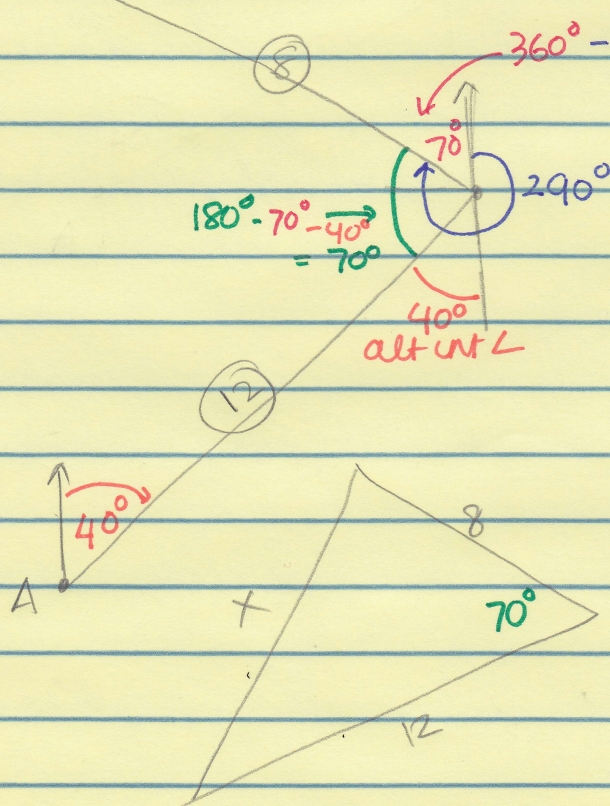 8
360° -
70°
290°
180° - 70° - 40°
= 70°
40°
alt int ∠
12
40°
A
8
x
70°
12